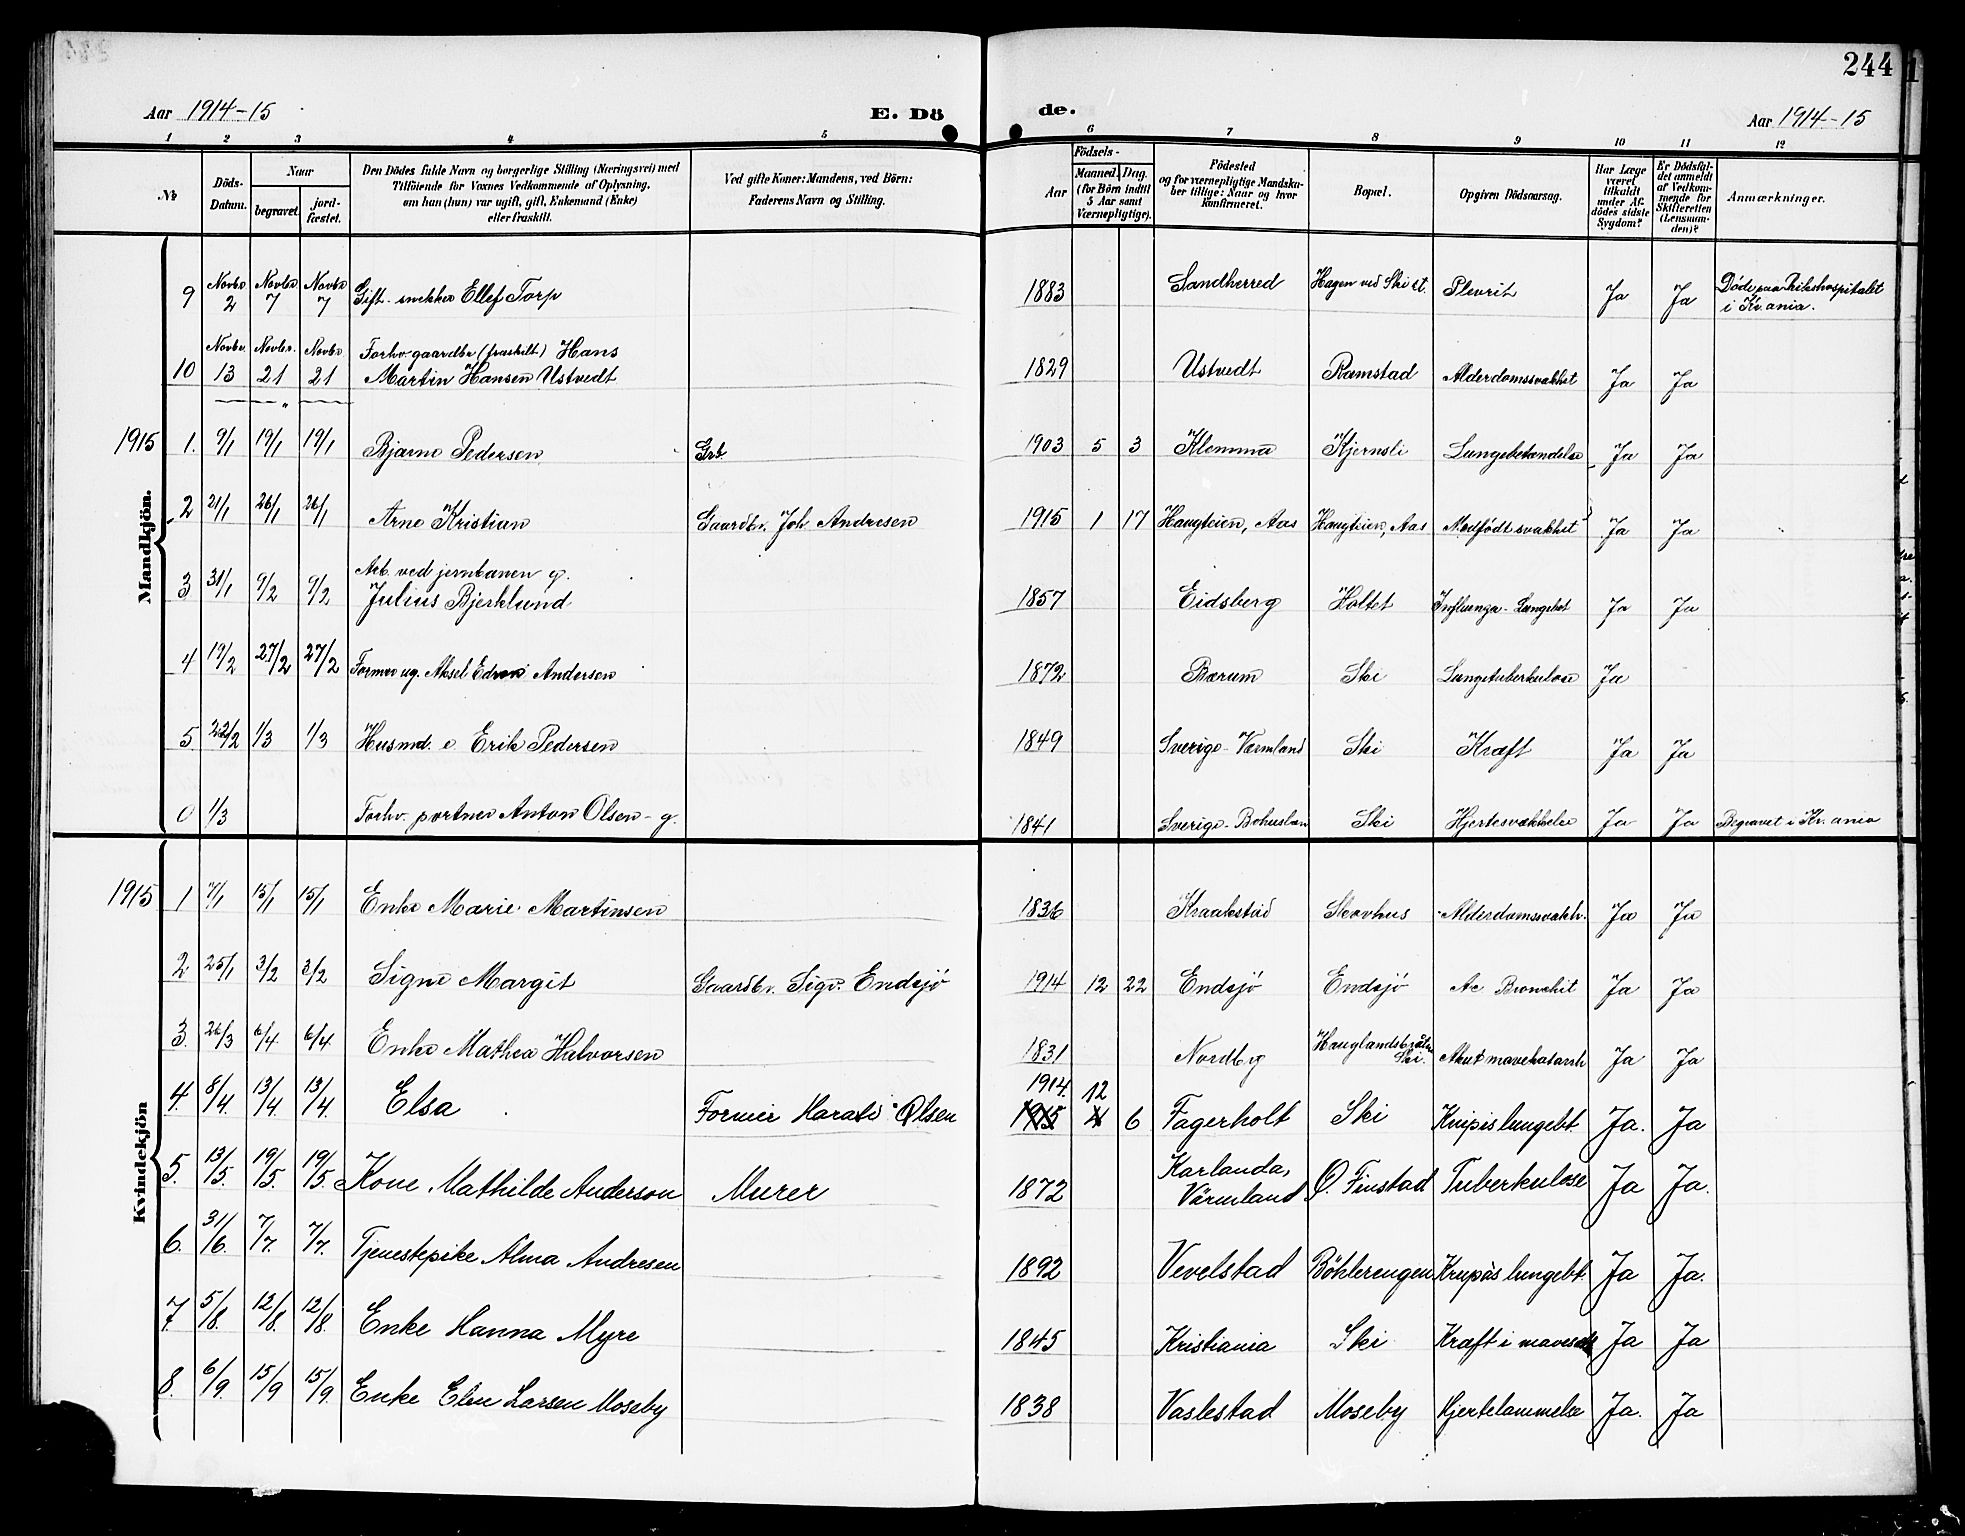 244
Aar 1914-15
E. Dö
de.
Aar 1914-15
1 2 3 4 5 6 7 8 9 10 11 12
No
Döds-Datum.
Naar
begravet.
jord-fæstet.
Den Dödes fulde Navn og borgerlige Stilling (Næringsvei) med
Tilföiende for Voxnes Vedkommende af Oplysning,
om han (hun) var ugift, gift, Enkemand (Enke)
eller fraskilt.
Ved gifte Koner: Mandens, ved Börn:
Faderens Navn og Stilling.
Födsels-
Aar
Maaned. Dag.
(for Börn indtil
5 Aar samt
Værnepligtige).
Födested
og for værnepligtige Mandska-
ber tillige: Naar og hvor
konfirmeret.
Bopæl.
Opgiven Dödsaarsag.
Har Læge
været
tilkaldt
under Af-
dödes sidste
Sygdom?
Er Dödsfal-
det anmeldt
af Vedkom-
mende for
Skifteretten
(Lensman-
den)?
Anmærkninger.
Mandkjön.
9 Novbr 2 Novbr 7 Novbr 7 Gift. snekker Ellef Torp 1883 Sandherred Hagen ved Ski st. Plevrit Ja Ja Döde paa Rikshospitalet
i Kr.ania.
10 Novbr. 13 Novbr. 21 Novbr 21 Forhv. gaardbr (fraskilt) Hans
Martin Hansen Ustvedt 1829 Ustvedt Ramstad Alderdomssvakhet Ja Ja
1915 1. 9/1 19/1 19/1 Bjarne Pedersen Grb. 1903 5 3 Klemma Kjernsli Lungebetændelse Ja Ja
2 21/1 26/1 26/1 Arne Kristian Gaardbr. Joh Andresen 1915 1 17 Haugteien, Aas Haugteien, Aas Medfödt svakhet Ja Ja
3 31/1 9/2 9/2 Arb. ved jernbanen g.
Julius Bjerklund 1857 Eidsberg Holtet Influenza - Lungebet Ja Ja
4 19/2 27/2 27/2 Former ug. Aksel Edvin Andersen 1872 Bærum Ski Lungetuberkulose Ja
5 22/2 1/3 1/3 Husmd. e. Erik Pedersen 1849 Sverige - Værmland Ski Kræft Ja Ja
0 1/3 Forhv. portner Anton Olsen - g. 1841 Sverige - Bohuslæn Ski Hjertesvækkelse Ja Ja Begravet i Kr.ania
Kvindekjön
1915 1 7/1 15/1 15/1 Enke Marie Martinsen 1836 Kraakstad Skovhus Alderdomssvakh. Ja Ja
2 25/1 3/2 3/2 Signe Margit Gaardbr. Sigv. Endsjö 1914 12 22 Endsjö Endsjö Ac Bronchit Ja Ja
3. 26/3 6/4 6/4 Enke Mathea Halvorsen 1831 Nordby Ski. Akut mavekatarrh Ja Ja
4. 8/4. 13/4. 13/4. Elsa Former Harald Olsen 1914. 1915 12 4 6 Fagerholt Ski Krupis lungebt. Ja. Ja
5. 13/5. 19/5. 19/5. Kone Mathilde Anderson Murer 1872 Karlanda,
Värmland. Ø. Finstad Tuberkulose Ja Ja.
6. 31/6. 7/7. 7/7. Tjenestepike Alma Andresen 1892 Vevelstad Böhlerengen Krupös lungebt. Ja Ja.
7. 5/8. 12/8. 12/8. Enke Hanna Myre 1845 Kristiania Ski Kræft i Ja Ja
8. 6/9. 15/9 15/9. Enke Elen Larsen Moseby 1838 Vaslestad Moseby Hjertelammelse Ja. Ja